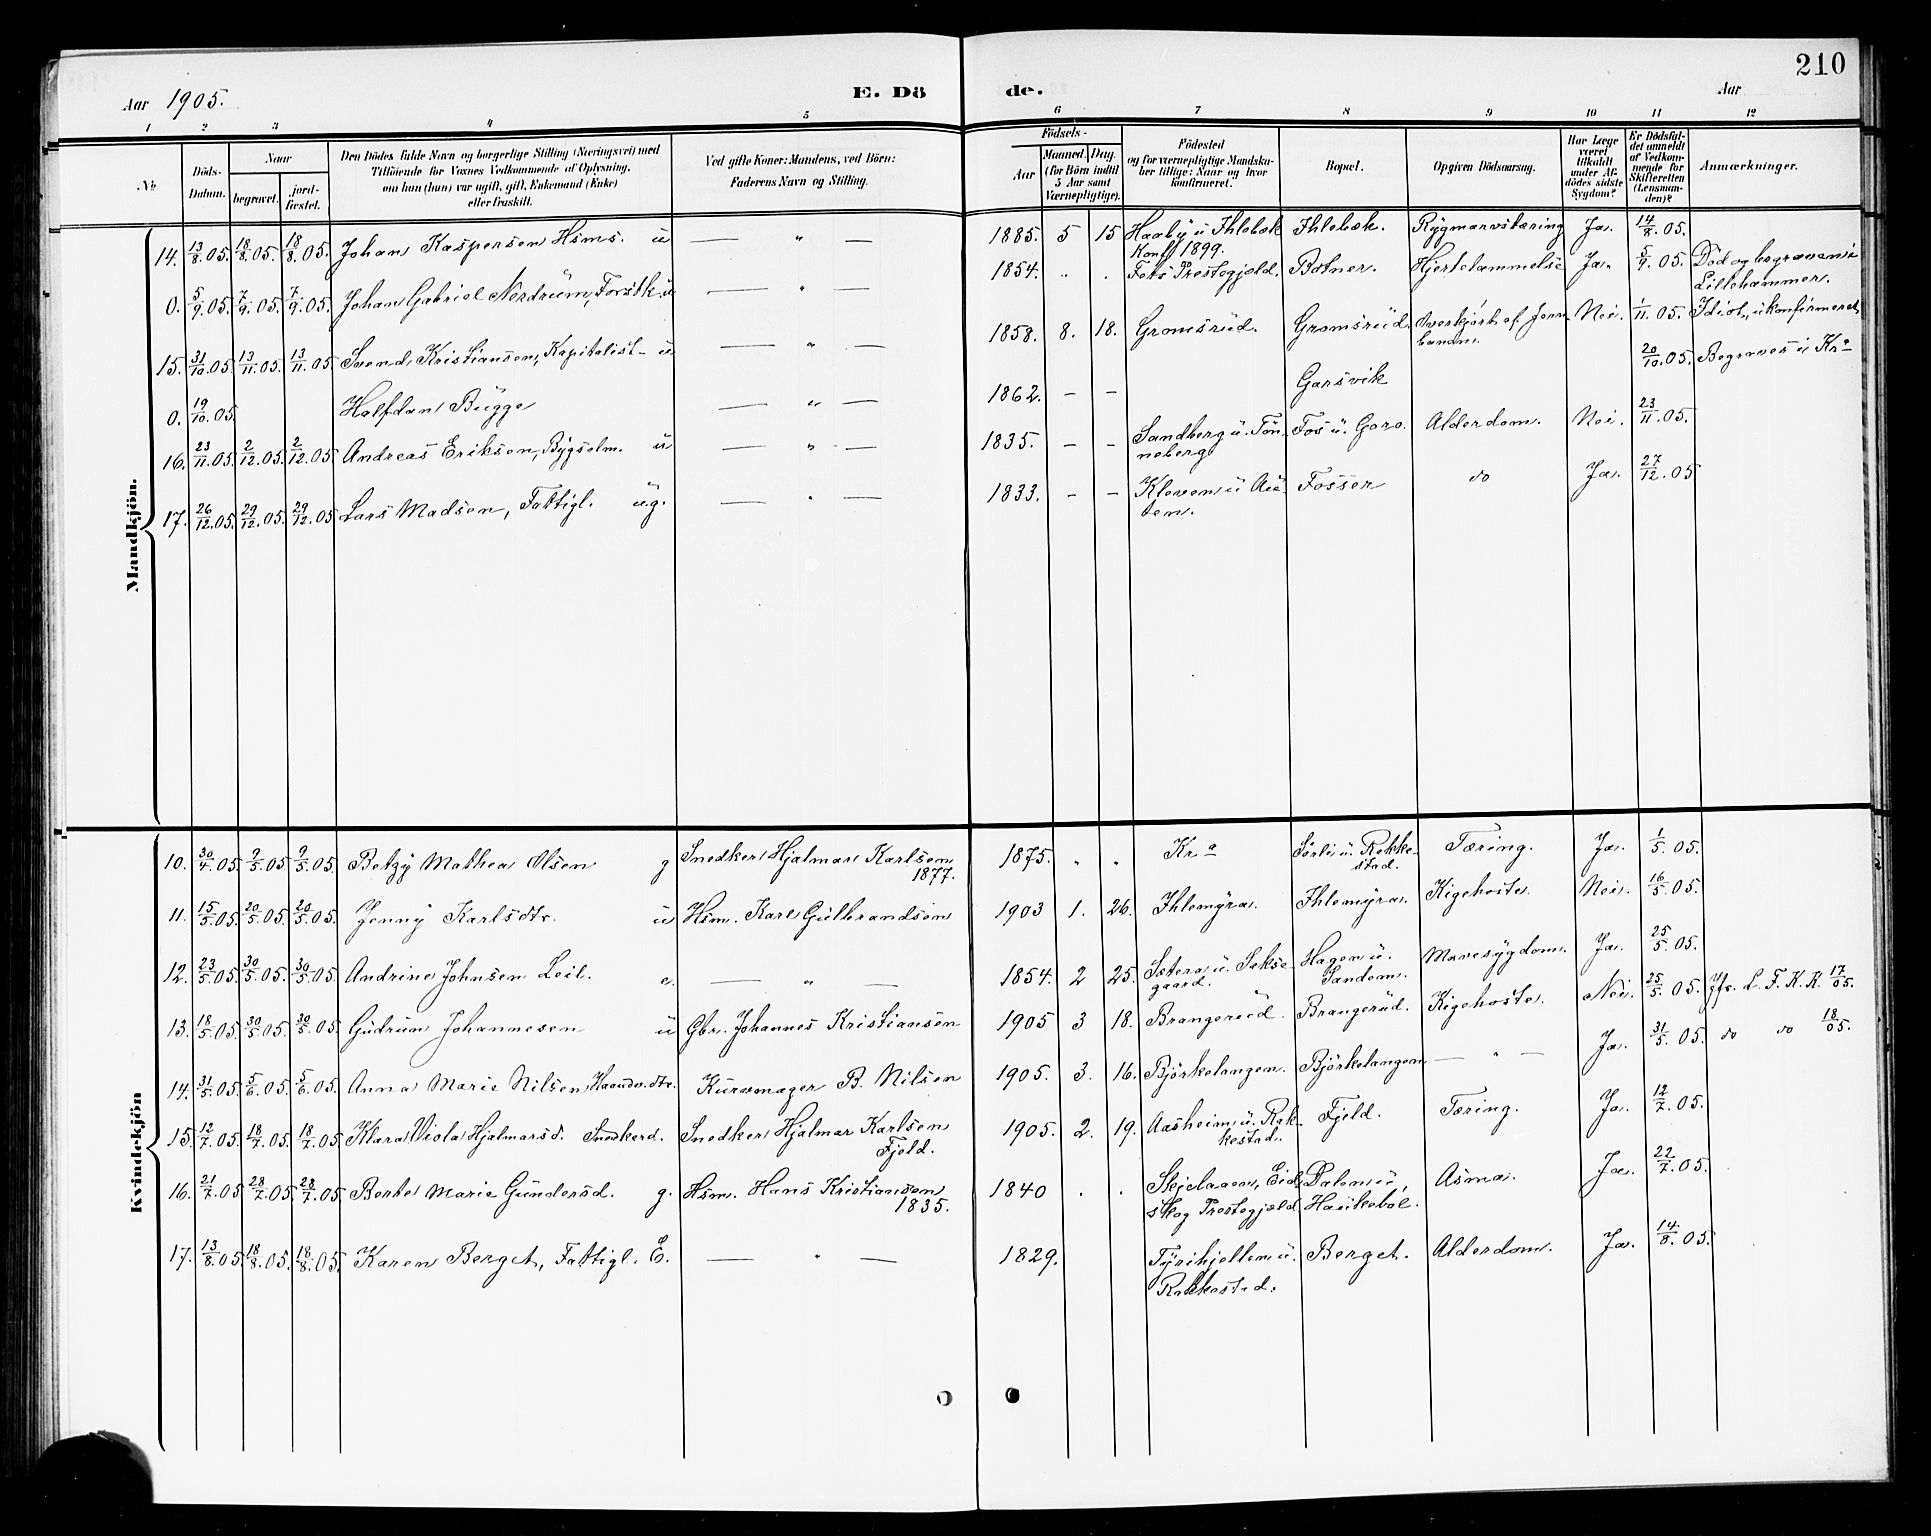 210
Aar 1905. E. Dö de. Aar
1 2 3 4 5 6 7 8 9 10 11 12
No
Döds-Datum.
Naar
begravet.
jord-fæstet.
Den Dödes fulde Navn og borgerlige Stilling (Næringsvei) med
Tilföiende for Voxnes Vedkommende af Oplysning,
om han (hun) var ugift, gift, Enkemand (Enke)
eller fraskilt.
Ved gifte Koner: Mandens, ved Börn:
Faderens Navn og Stilling.
Födsels-
Aar
Maaned. Dag.
(for Börn indtil
5 Aar samt
Værnepligtige).
Födested
og for værnepligtige Mandska-
ber tillige: Naar og hvor
konfirmeret.
Bopæl.
Opgiven Dödsaarsag.
Har Læge
været
tilkaldt
under Af-
dödes sidste
Sygdom?
Er Dödsfal-
det anmeldt
af Vedkom-
mende for
Skifteretten
(Lensman-
den)?
Anmærkninger.
Mandkjön.
14. 13/8 05. 18/8 05. 18/8 05. Johan Kaspersen Hsms. u — " — 1885. 5 15 Haaby u Ihlebæk Konf. 1899. Ihlebæk. Rygmarvstæring Ja. 14/8. 05.
0. 5/9 05. 7/9. 05. 7/9. 05. Johan Gabriel Nordrum, Forstk. u — " — 1854. " . Fets Prestegjeld. Botner. Hjertelammelse Ja. 5/9. 05. Död og begraven i Lillehammer.
15. 31/10 05. 13/11. 05. 13/11. 05 Svend Kristiansen, Kapitalist u — " — 1858. 8. 18. Gromsrud. Gromsrud. Overkjört af Jernbanen. Nei. 1/11. 05. Idiot, ukonfirmeret
0. 19/10. 05. Halfdan Bugge — " — 1862. – – Garsvik 20/10. 05. Begraves i Kra
16. 23/11 05. 2/12. 05. 2/12. 05 Andreas Eriksen, Bygselm. u — " — 1835. – – Sandberg u. Tönneberg Fos u. Goro. Alderdom. Nei. 23/11. 05.
17. 26/12. 05. 29/12. 05. 29/12. 05 Lars Madsen, Fattigl. ug. — " — 1833. – – Kleven u Auten. Fosser do Ja. 27/12. 05
Kvindekjön
10. 30/4 05. 9/5. 05. 9/5. 05. Betzy Mathea Olsen g Snedker Hjalmar Karlsen 1877. 1875. " " Kra Sörli u. Rakkestad. Tæring. Ja. 1/5. 05.
11. 15/5 05. 20/5. 05. 20/5. 05. Jenny Karlsdtr. u Hsm. Karl Gulbrandsen 1903 1. 26. Ihlemyra. Ihlemyra. Kigehoste. Nei. 16/5. 05.
12. 23/5 05. 30/5. 05. 30/5. 05. Andrine Johnsen Leil. e. — " — 1854. 2 25. Sætera u. Saksegaard. Hagen u. Sandem. Mavesygdom. Ja. 25/5. 05.
13. 18/5 05. 30/5. 05. 30/5. 05. Gudrun Johannesen u Gbr. Johannes Kristiansen 1905 3 18. Brangerud. Brangerud. Kigehoste. Nei. 25/5. 05. Jfr. L. F. K. R. 17/05.
14. 31/5. 05. 5/6. 05. 5/6. 05. Anna Marie Nilsen, Haandv.dtr. Kurvmager B. Nilsen 1905. 3. 16. Björkelangen. Björkelangen — " — Ja. 31/5. 05. do do 18/05.
15. 12/7. 05. 18/7. 05. 18/7. 05. Klara Viola Hjalmarsd. Snedkerd. Snedker Hjalmar Karlsen Fjeld. 1905. 2. 19. Aasheim u. Rakkestad. Fjeld. Tæring. Ja. 12/7. 05.
16. 21/7. 05 28/7. 05. 28/7. 05 Berte Marie Gundersd. g. Hsm. Hans Kristiansen 1835. 1840 . . Skjelaaen, Eidskog Prestegjæld. Dalen u, Haukebøl. Asma. Ja. 22/7. 05.
17. 13/8. 05. 18/8. 05. 18/8. 05. Karen Berget, Fattigl. E. — " — 1829. Tyrihjellen u. Rakkestad. Berget. Alderdom. Ja. 14/8. 05.